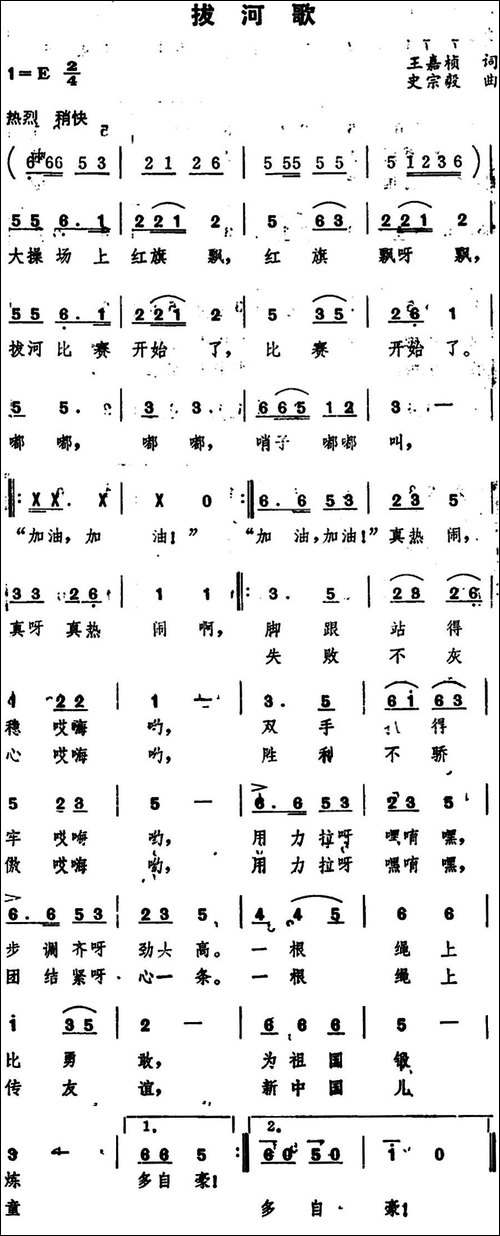 拔河歌
1=E 2/4
王嘉桢 词
史宗毅 曲
热烈 稍快
( 6 66 5 3 | 2 1 2 6 | 5 55 5 5 | 5 1 2 3 6 )
5 5 6. 1 | 2 2 1 2 | 5 6 3 | 2 2 1 2 |
大操场上 红旗飘, 红旗 飘呀飘,
5 5 6. 1 | 2 2 1 2 | 5 3 5 | 2 6 1 |
拔河比赛 开始了, 比赛 开始了。
5 5. | 3 3. | 6 6 5 1 2 | 3 — |
嘟嘟, 嘟嘟, 哨子嘟嘟叫,
‖: X X. X | X 0 :‖: 6. 6 5 3 | 2 3 5 |
“加油,加 油!” “加油,加油!” 真热闹,
3 3 2 6 | 1 1 :‖: 3. 5 | 2 3 2 6 |
真呀真热 闹啊, 脚跟 站得
失败 不灰
1 2 2 | 1 — | 3. 5 | 6 i 6 3 |
稳哎嗨 哟, 双手 得
心哎嗨 哟, 胜利 不骄
5 2 3 | 5 — | 6. 6 5 3 | 2 3 5 |
牢哎嗨 哟, 用力拉呀 嘿唷嘿,
傲哎嗨 哟, 用力拉呀 嘿唷嘿,
6. 6 5 3 | 2 3 5 | 4 4 5 | 6 6 |
步调齐呀 劲头高。 一根 绳上
团结紧呀 心一条。 一根 绳上
i 3 5 | 2 — | 6 6 6 | 5 — |
比勇 敢, 为祖国 锻
传友 谊, 新中国 儿
1. 2.
3 — | 6 6 5 :‖ 6 0 5 0 | i 0 ‖
炼 多自豪!
童 多自 豪!